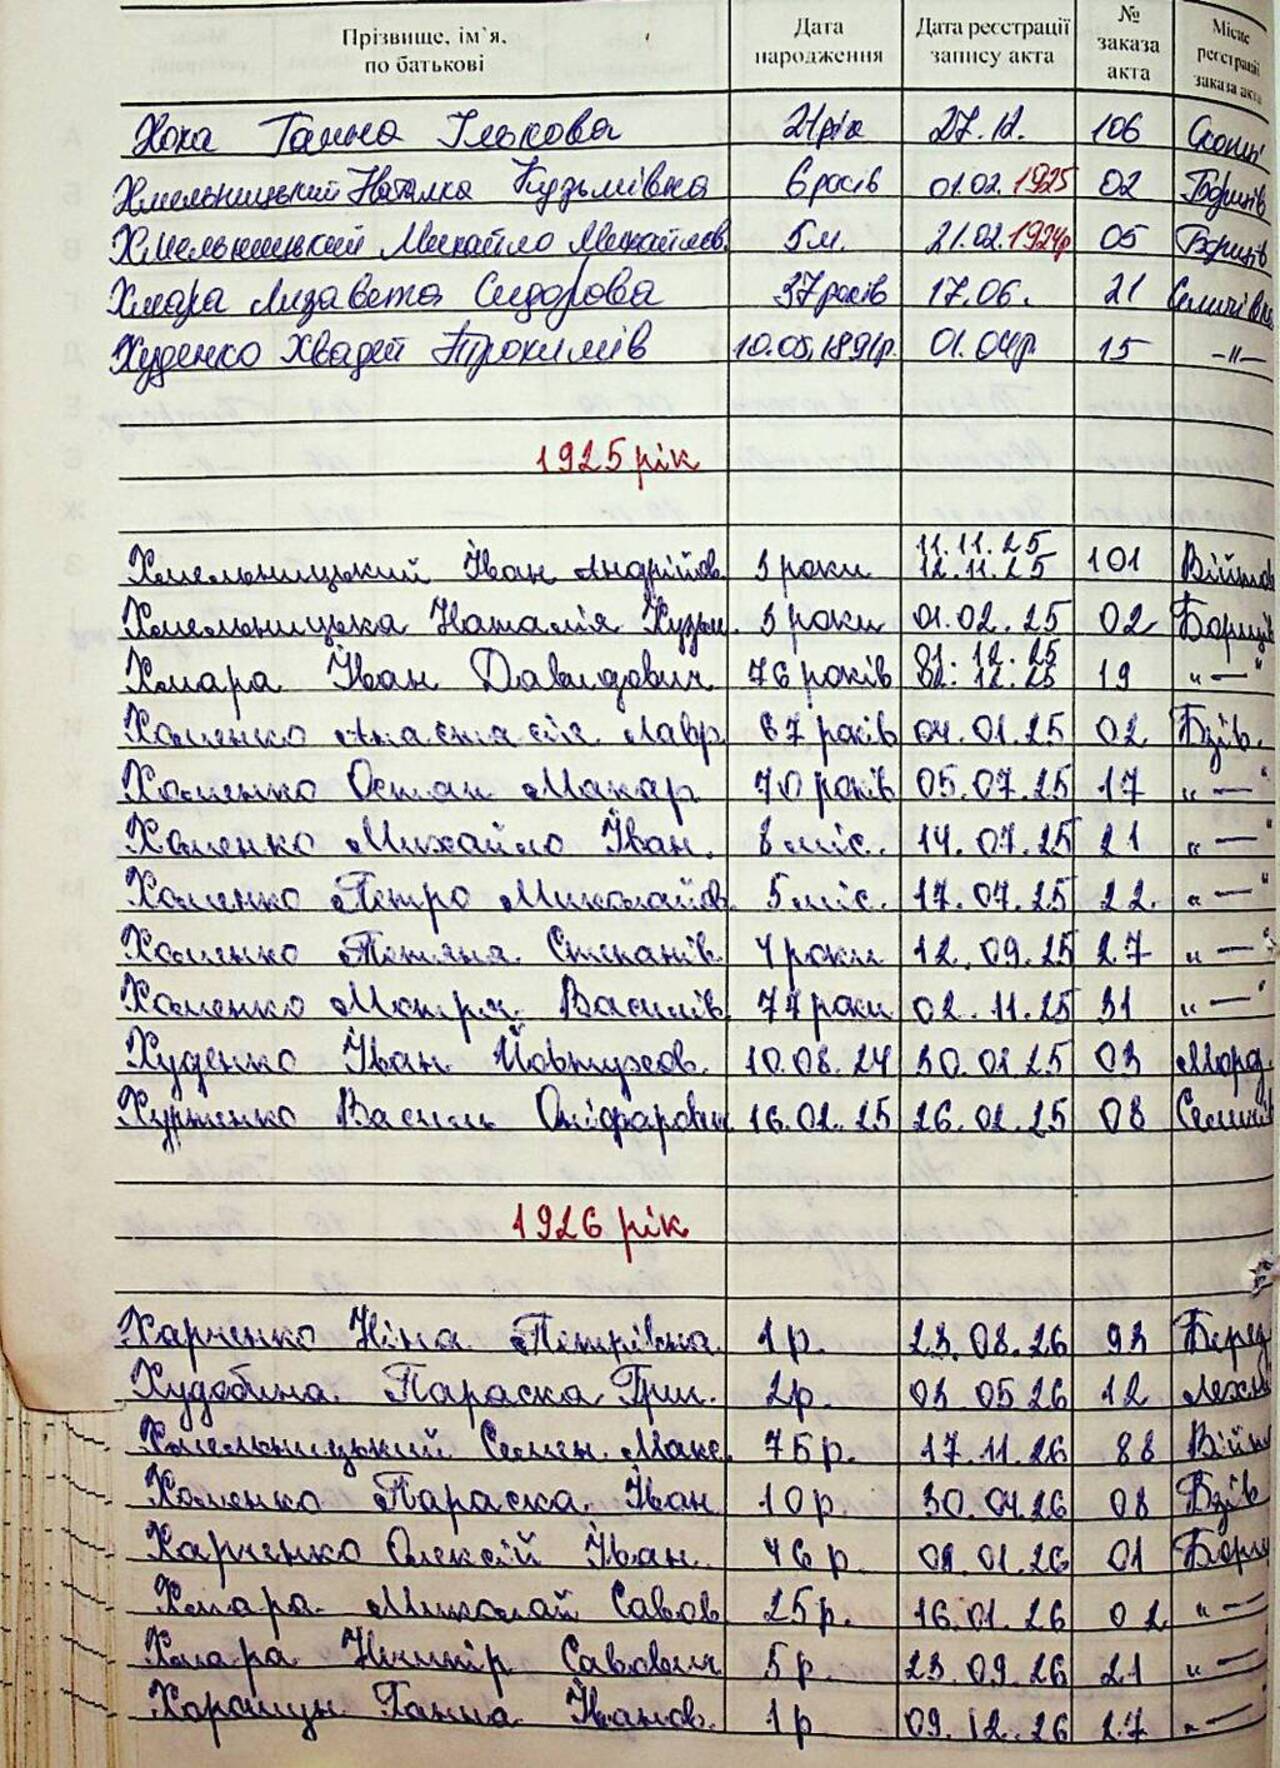 Прізвище, ім`я, по батькові Дата народження Дата реєстрації запису акта № заказа акта Місце реєстрації заказа акта
Хока Ганна Ількова 21рік 27.12. 106
Хмельницький Наталка Кузьмівна 6 років 01.02.1925 02 Борщів
Хмельницький Михайло Михайлов. 5 м. 21.02.1924р 05 Борщів
Хмара Лизавета Сидорова 37 років 17.06. 21 Семичівка
Худенко Хвадей Трохимів 10.05.1891р. 01.04р. 15 -"-
1925 рік
Хмельницький Іван Андрійов. 3 роки 11.11.25 12.11.25 101 Війтов
Хмельницька Наталія Кузьм. 3 роки 01.02.25 02 Борщів
Хмара Іван Давидович 76 років 31.12.25 19 "—"
Хоменко Анастасія Лавр. 67 років 04.01.25 02 Бзів.
Хоменко Остап Макар 70 років 05.07.25 17 "—"
Хоменко Михайло Іван. 8 міс. 14.07.25 21 "—"
Хоменко Петро Миколайов. 5 міс. 17.07.25 22. "—"
Хоменко Тетяна Степанів. 4 роки 12.09.25 27 "—"
Хоменко Мотря Василів. 77 роки 02.11.25 31 "—"
Худенко Іван Йовтухов. 10.08.24 30.01.25 03 Морд.
Хурженко Василь Оніфарович 16.02.25 26.02.25 08 Семичів
1926 рік
Харченко Ніна Петрівна 1 р. 23.08.26 93 Берез
Худобина Параска Григ. 2р. 03.05.26 12 Лехн
Хмельницький Семен Макс. 75 р. 17.11.26 88 Війт
Хоменко Параска Іван 10 р. 30.04.26 08 Бзів
Харченко Олексій Іван. 46 р. 08.01.26 01 Борщ
Хмара Миколай Савов. 25 р. 16.01.26 02 "—"
Хмара Ничипір Савович 5 р. 23.09.26 21 "—"
Харашун Ганна Іванов. 1 р. 09.12.26 27 "—"